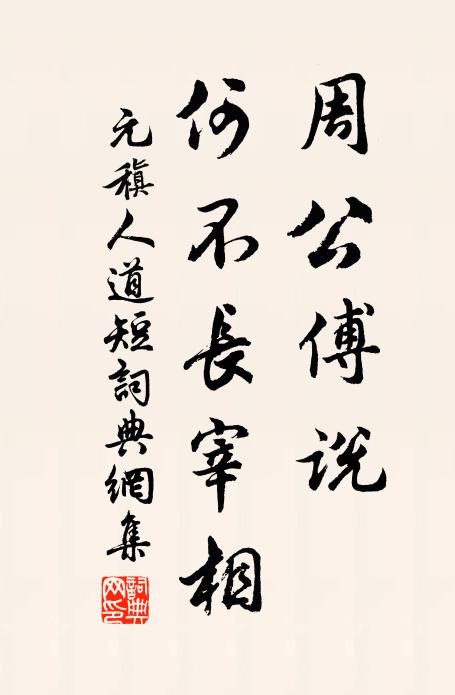 周公傅説
何不長宰相
元稹人道短詞典網集
詞典網印